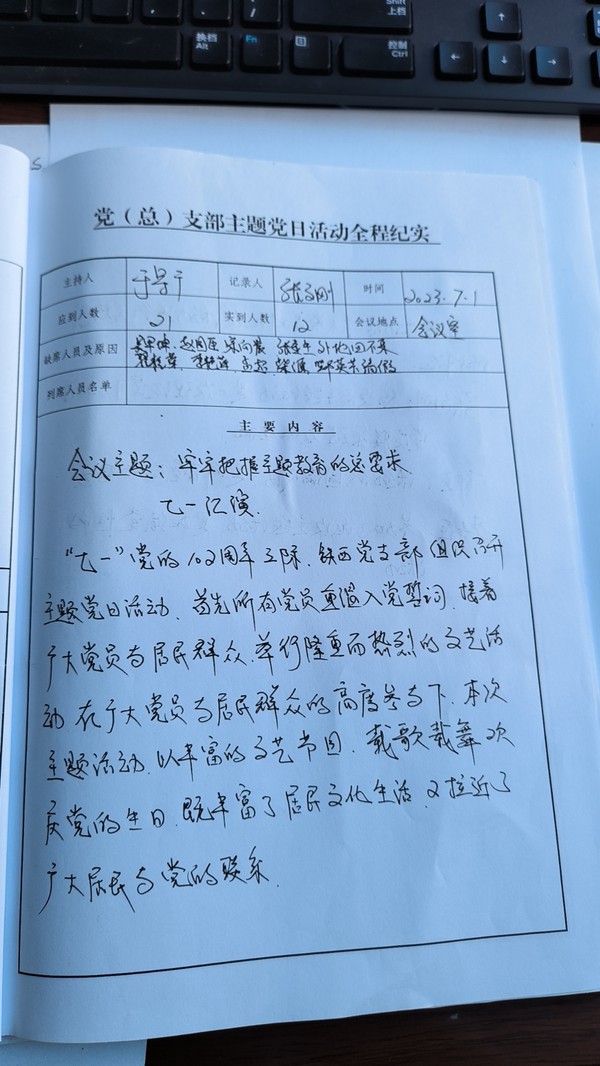 Shift
上档
换档
Alt
Fn
控制
Ctrl
党（总）支部主题党日活动全程纪实
主持人
记录人
时间 2023.7.1
应到人数 21 实到人数 12 会议地点 会议室
缺席人员及原因
列席人员名单
主要内容
会议主题：牢牢把握主题教育的总要求
七一汇演.
“七一”党的102周年之际，铁西党支部组织召开
主题党日活动，首先所有党员重温入党誓词，接着
广大党员与居民群众，举行隆重而热烈的文艺活
动，在广大党员与居民群众的高度参与下，本次
主题活动，以丰富的文艺节目，载歌载舞欢
庆党的生日，既丰富了居民文化生活，又拉近了
广大居民与党的联系.